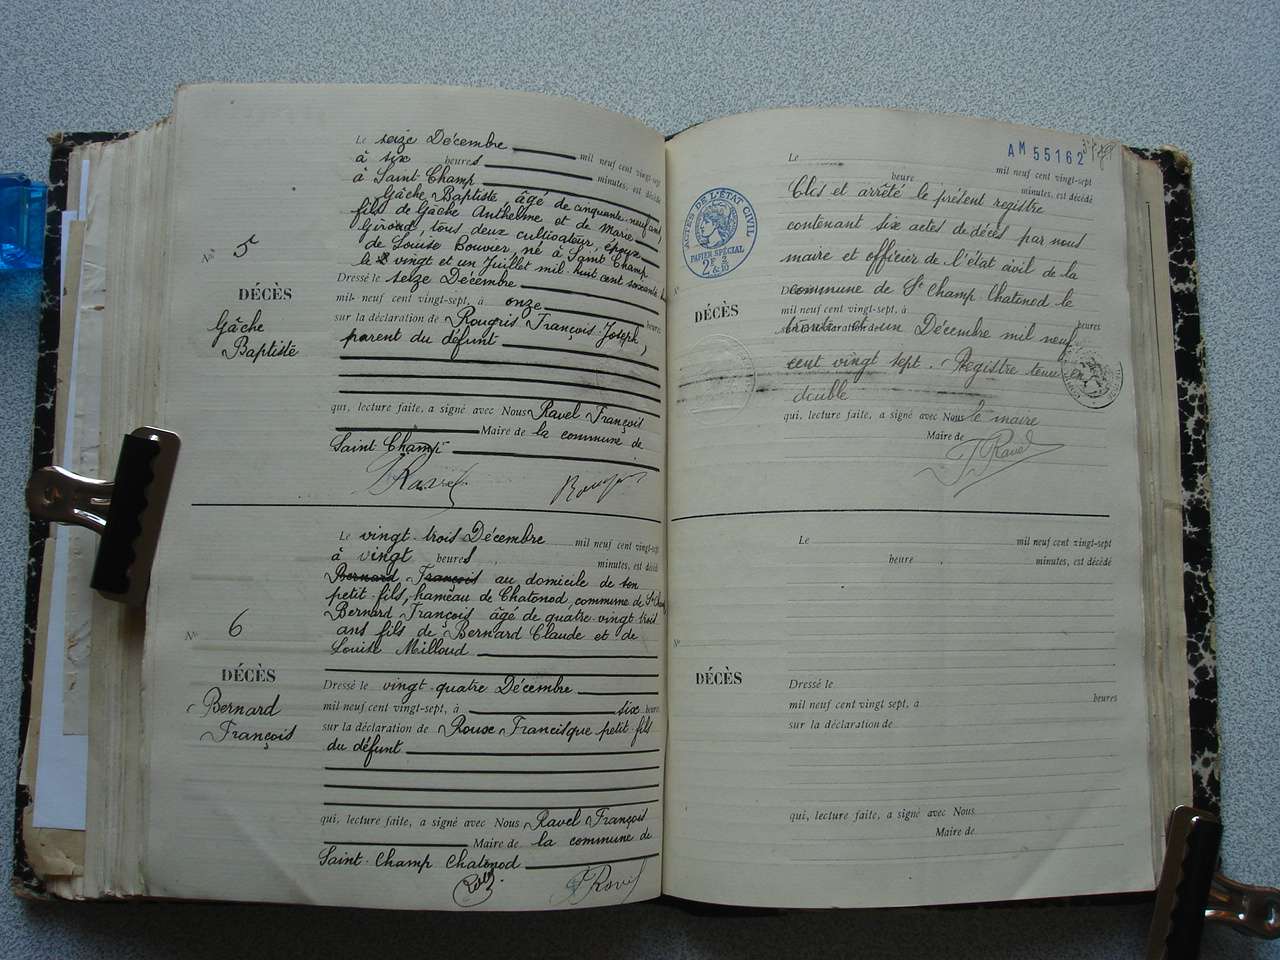 Le seize Décembre mil neuf cent vingt-sept
à six heures minutes, est décédé
à Saint Champ
Gâche Baptiste âgé de cinquante-neuf ans,
fils de Gâche Anthelme et de Marie
Giroud, tous deux cultivateur, époux
de Louise Bouvier, né à Saint Champ
le vingt et un Juillet mil huit cent soixante
No 5
DÉCÈS
Gâche
Baptiste
Dressé le seize Décembre
mil neuf cent vingt-sept, à onze heures
sur la déclaration de François Joseph,
parent du défunt
qui, lecture faite, a signé avec Nous Ravel François
Maire de la commune de
Saint Champ
Ravel
Le vingt trois Décembre mil neuf cent vingt-sept
à vingt heures minutes, est décédé
Bernard François au domicile de son
petit-fils, hameau de Chatonod, commune de St Champ
Bernard François âgé de quatre vingt trois
ans fils de Bernard Claude et de
Louise Milloud
No 6
DÉCÈS
Bernard
François
Dressé le vingt-quatre Décembre
mil neuf cent vingt-sept, à six heures
sur la déclaration de Roux Francisque petit-fils
du défunt
qui, lecture faite, a signé avec Nous Ravel François
Maire de la commune de
Saint-Champ Chatonod
F Ravel
AM 55162
Le mil neuf cent vingt-sept
heure minutes, est décédé
Clos et arrêté le présent registre
contenant six actes de décès par nous
maire et officier de l'état civil de la
commune de St Champ Chatonod le
trente et un Décembre mil neuf
cent vingt sept. Registre tenu en
double
ACTES DE L'ÉTAT CIVIL
PAPIER SPÉCIAL
DÉCÈS
Dressé le
mil neuf cent vingt-sept, à heures
sur la déclaration de
qui, lecture faite, a signé avec Nous le maire
Maire de
F Ravel
Le mil neuf cent vingt-sept
heure minutes, est décédé
No
DÉCÈS
Dressé le
mil neuf cent vingt-sept, à heures
sur la déclaration de
qui, lecture faite, a signé avec Nous
Maire de